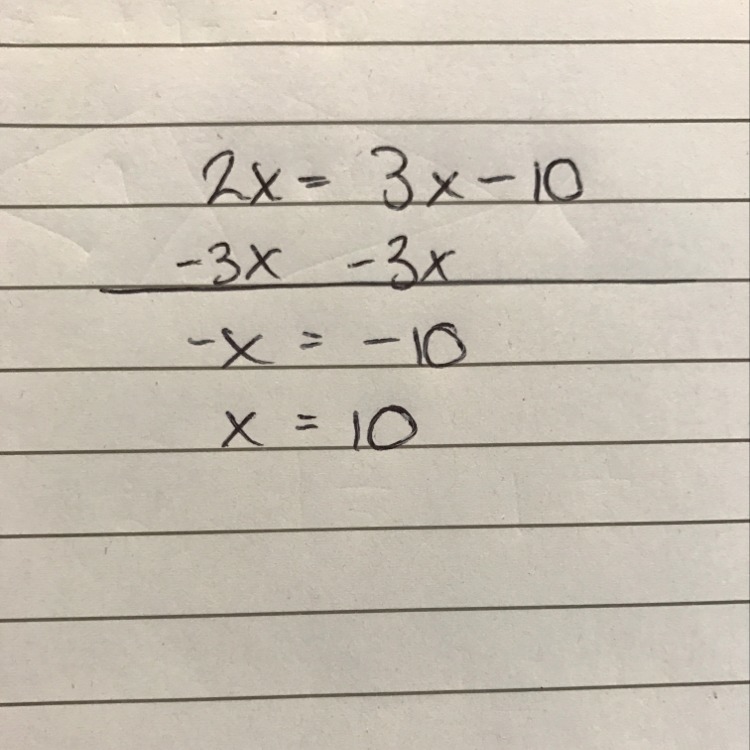 2x = 3x - 10
-3x -3x
-x = -10
x = 10